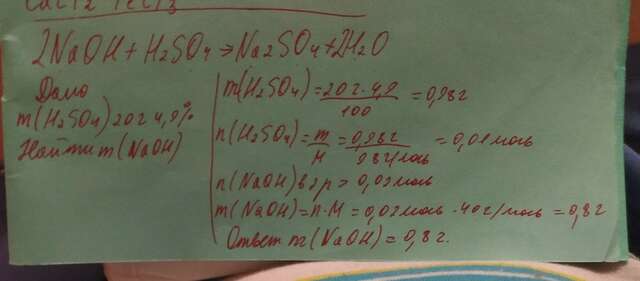 CaCl2 FeCl3
2NaOH + H2SO4 → Na2SO4 + 2H2O
Дано
m(H2SO4) 20г 4,9%
Найти m(NaOH)
m(H2SO4) = 20г · 4,9 / 100 = 0,98г
n(H2SO4) = m / M = 0,98г / 98г/моль = 0,01моль
n(NaOH) в 2р > 0,02моль
m(NaOH) = n · M = 0,02моль · 40г/моль = 0,8г
Ответ m(NaOH) = 0,8г.